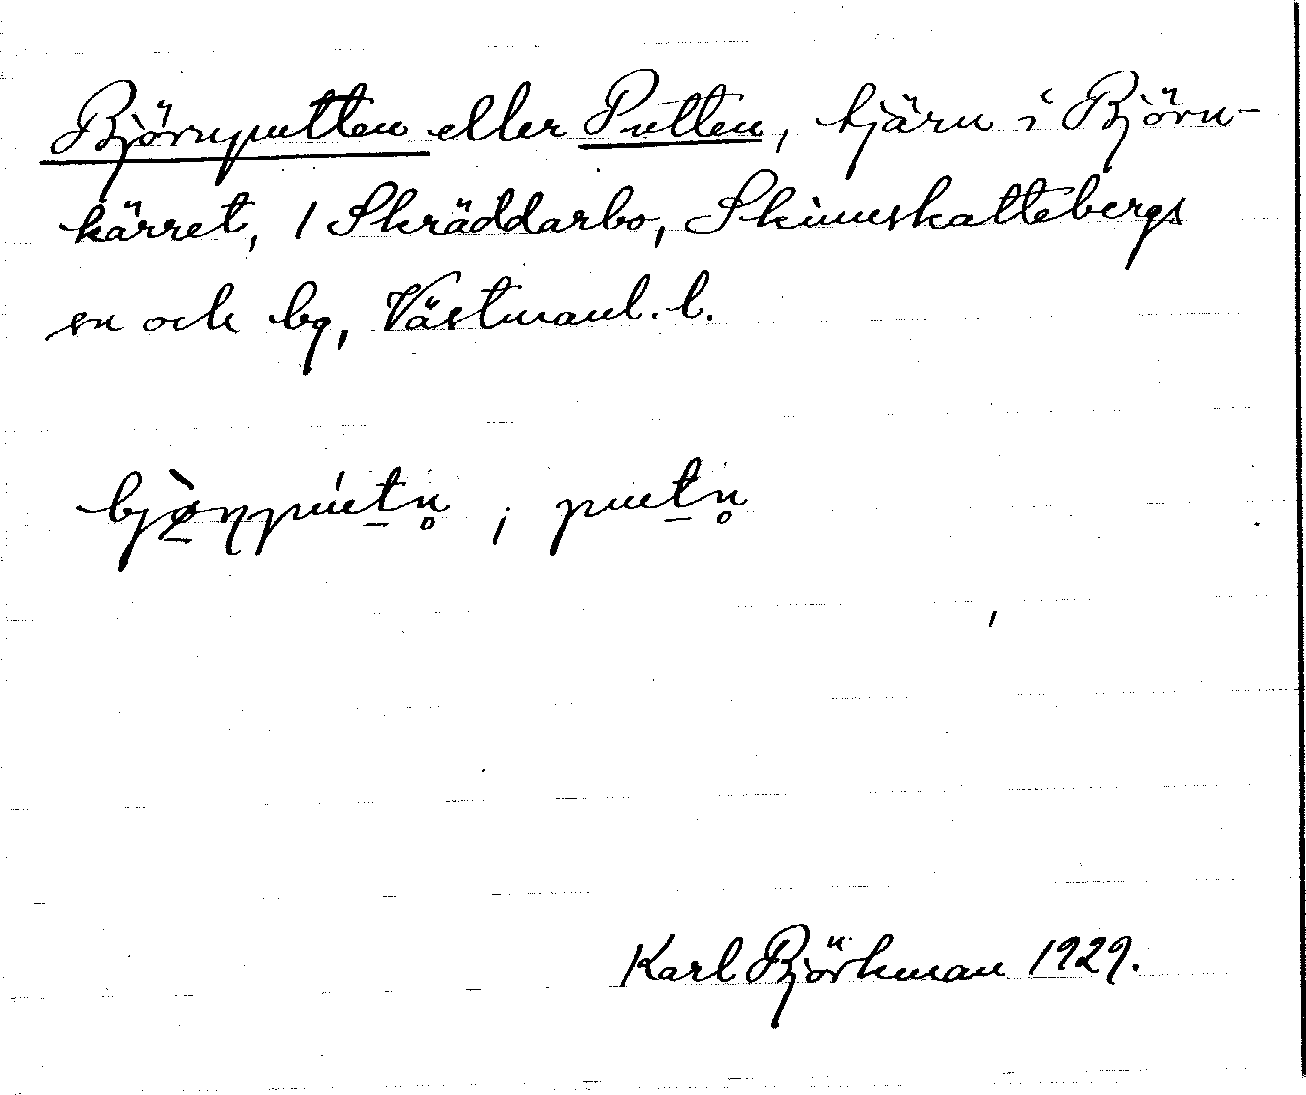 Björnputten eller Putten, tjärn i Björn-
kärret, 1 Skräddarbo, Skinnskattebergs
sn och bg, Västmanl. l.
bjö̀ṇpút̠n̥ ; put̠n̥
Karl Björkman 1929.